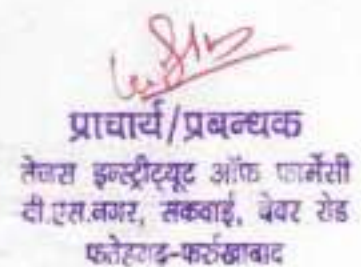 प्राचार्य/प्रबन्धक
तेजस इन्स्टीट्यूट ऑफ फार्मेसी
वी.एस.नगर, सकवाई, बेवर रोड
फतेहगढ़-फर्रुखाबाद